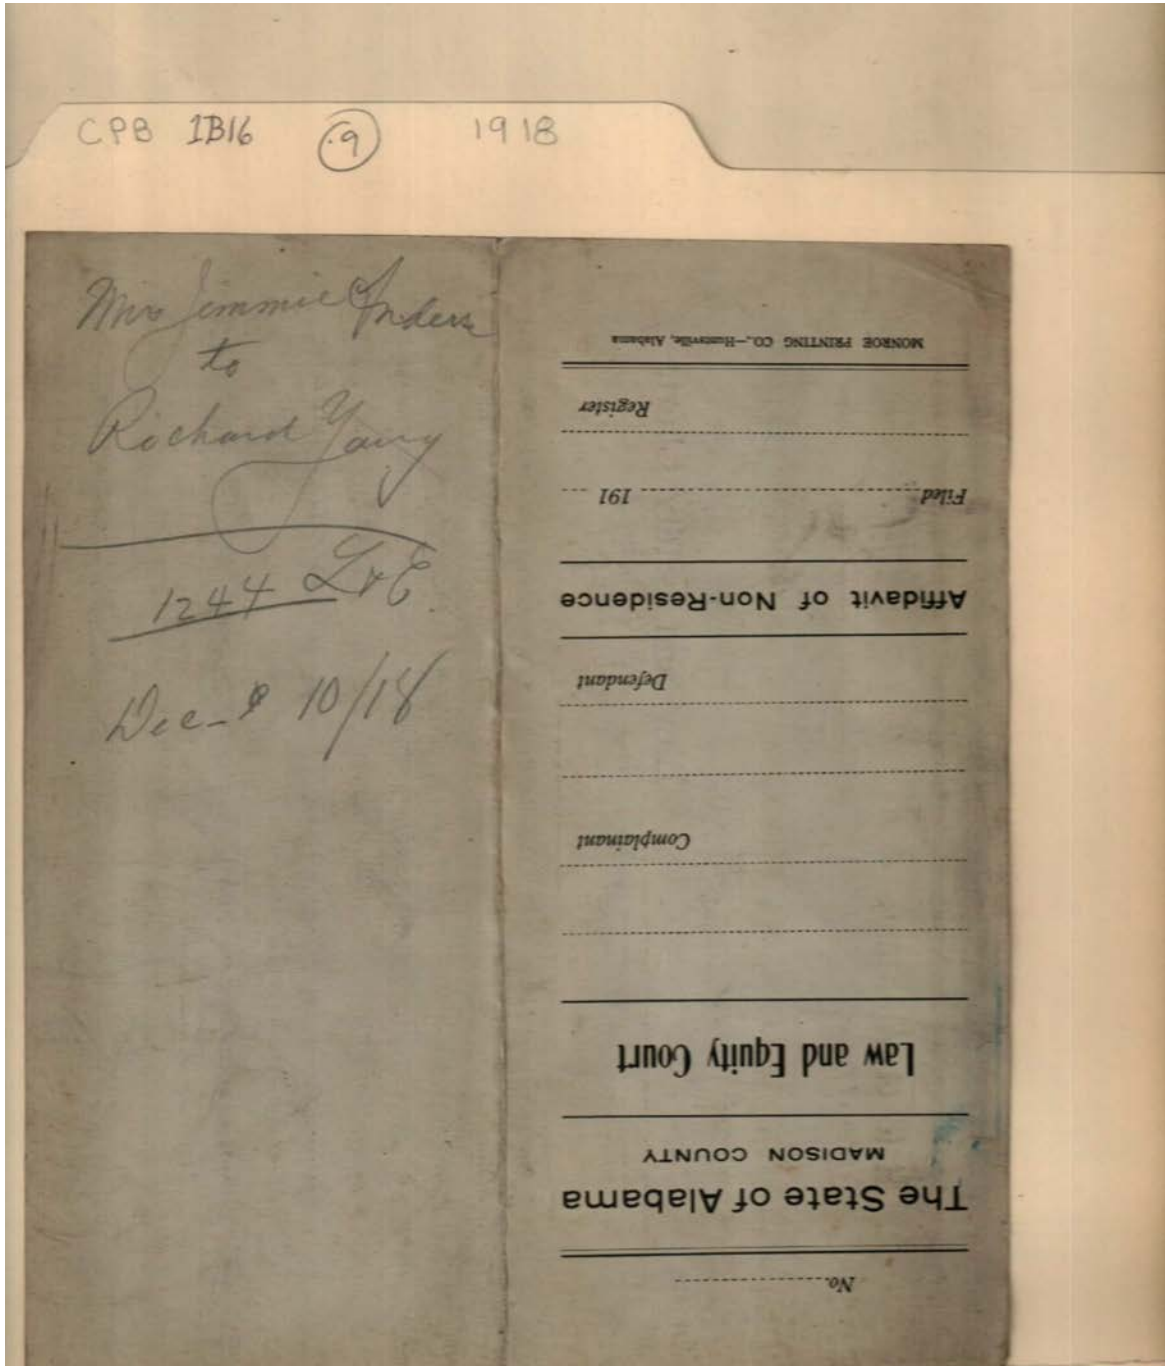 CPB 1B16 .9 1918
Mrs Jimmie
to
Richard
1244 L & E.
Dec 10/18
No.
The State of Alabama
MADISON COUNTY
Law and Equity Court
Complainant
Defendant
Affidavit of Non-Residence
Filed 191
Register
MONROE PRINTING CO.,—Huntsville, Alabama